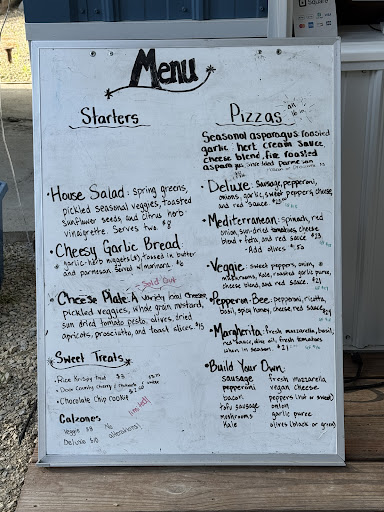 Menu
Starters
• House Salad: spring greens,
pickled seasonal veggies, toasted
sunflower seeds, and citrus herb
vinaigrette. Serves two. $8
• Cheesy Garlic Bread:
garlic-herb nuggets(6), tossed in butter
and parmesan served w/ marinara. $6
- Sold Out
• Cheese Plate: A variety local cheese,
pickled veggies, whole grain mustard,
sun dried tomato pesto, olives, dried
apricots, prosciutto, and toast slices. $15
Sweet Treats
• Rice Krispy Treat $3
• Chocolate Chip cookie
Calzones
Veggie $8 No
Deluxe $10 alterations!
Pizzas
all 16 in
Seasonal asparagus roasted
garlic herb cream sauce,
cheese blend, fire roasted
asparagus
• Deluxe: Sausage, pepperoni,
onions, garlic, sweet peppers, cheese,
and red sauce.
• Mediterranean: spinach, red
onion, sun-dried tomatoes, cheese
blend + feta, and red sauce $23
- Add olives $.50
• Veggie: sweet peppers, onion,
mushrooms, kale, roasted garlic puree,
cheese blend, and red sauce. $21
• Pepperoni-Bee: pepperoni, ricotta,
basil, spicy honey, cheese, red sauce
• Margherita: fresh mozzarella, basil,
red sauce, olive oil, fresh tomatoes
when in season. $21
• Build Your Own:
sausage fresh mozzarella
pepperoni vegan cheese
bacon peppers (hot or sweet)
tofu sausage onion
mushrooms garlic puree
Kale olives (black or green)